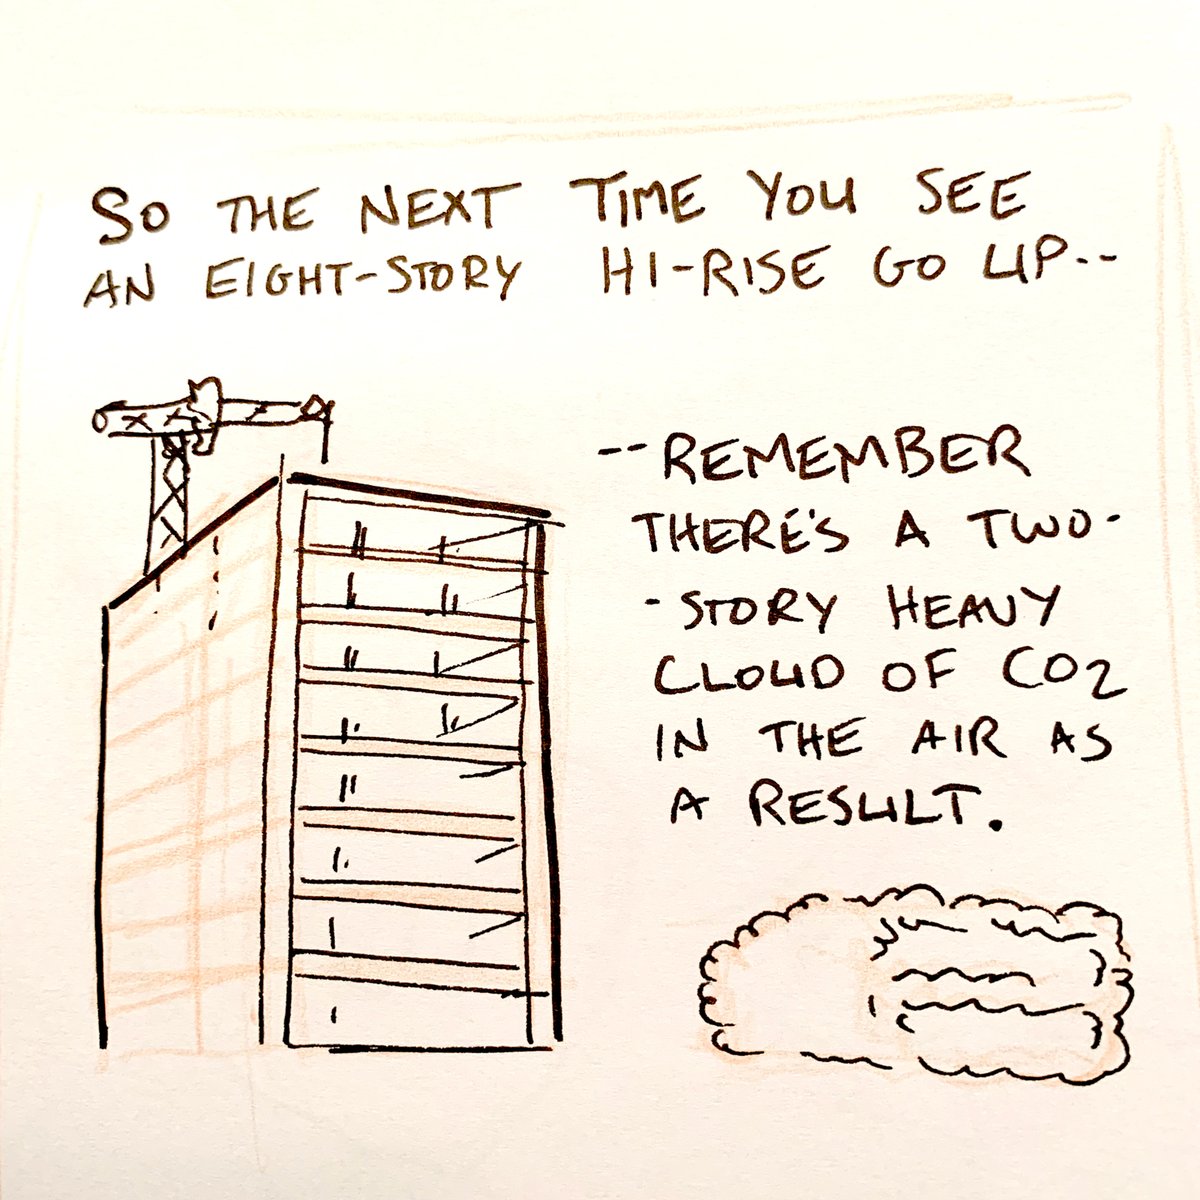 SO THE NEXT TIME YOU SEE
AN EIGHT-STORY HI-RISE GO UP--
--REMEMBER
THERE'S A TWO-
-STORY HEAVY
CLOUD OF CO2
IN THE AIR AS
A RESULT.